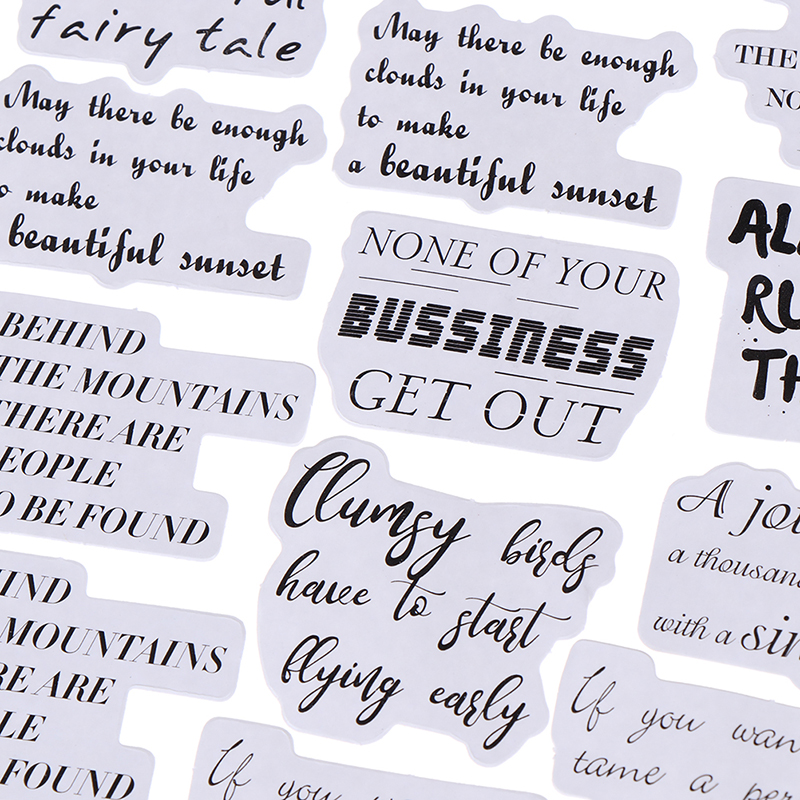 fairy tale
May there be enough
clouds in your life
to make
a beautiful sunset
THE
NO
May there be enough
clouds in your life
to make
beautiful sunset
NONE OF YOUR
BUSSINESS
GET OUT
AL
RU
TH
BEHIND
THE MOUNTAINS
THERE ARE
PEOPLE
TO BE FOUND
Clumsy birds
have to start
flying early
A jou
a thousan
with a sin
IND
MOUNTAINS
RE ARE
LE
FOUND
If you wan
tame a per
If you wan